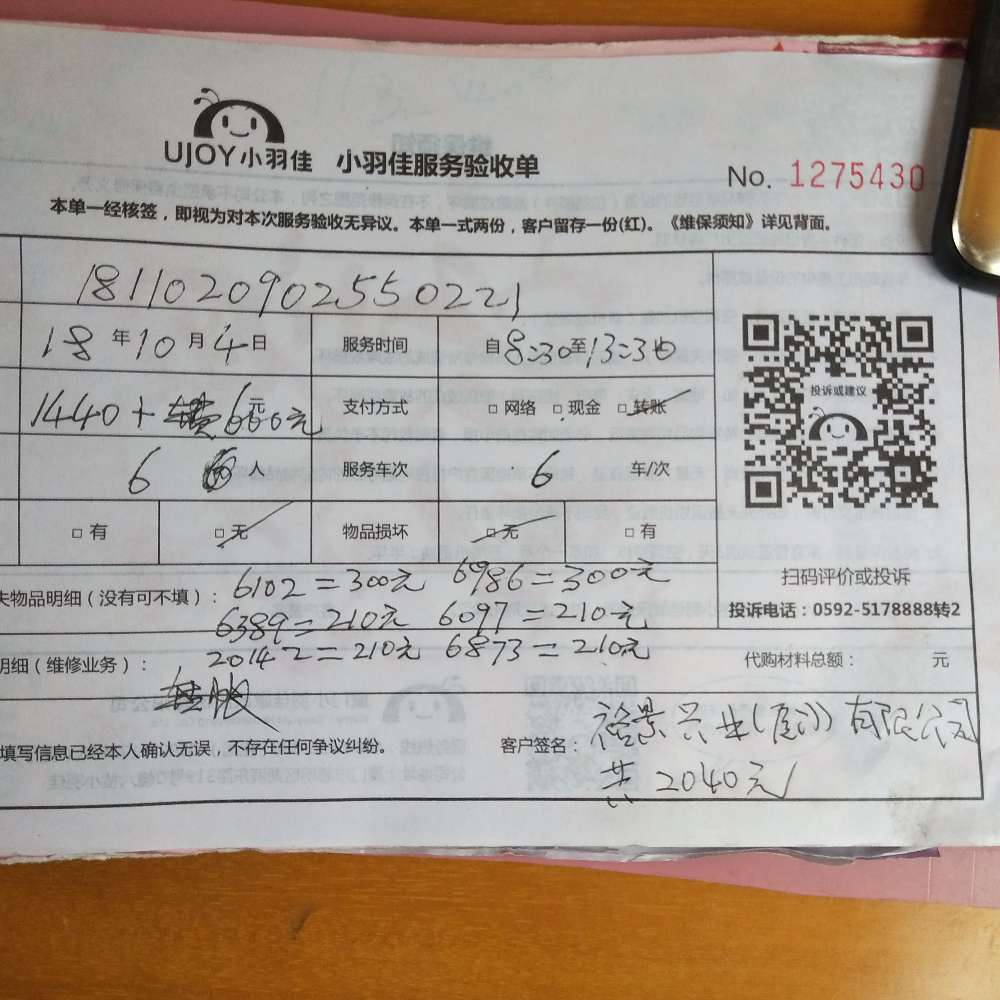 UJOY小羽佳 小羽佳服务验收单
No. 1275430
本单一经核签，即视为对本次服务验收无异议。本单一式两份，客户留存一份(红)。《维保须知》详见背面。
1811020902550221
18年10月4日 服务时间 自8:30至13:30
1440+ 600元 支付方式 □网络 □现金 □转账
投诉或建议
6 人 服务车次 6 车/次
□有 □无 物品损坏 □无 □有
扫码评价或投诉
失物品明细（没有可不填）： 6102=300元 6986=300元
6389=210元 6097=210元
投诉电话：0592-5178888转2
明细（维修业务）： 20142=210元 6873=210元
代购材料总额： 元
填写信息已经本人确认无误，不存在任何争议纠纷。 客户签名： 裕景兴业(厦门)有限公司
共2040元